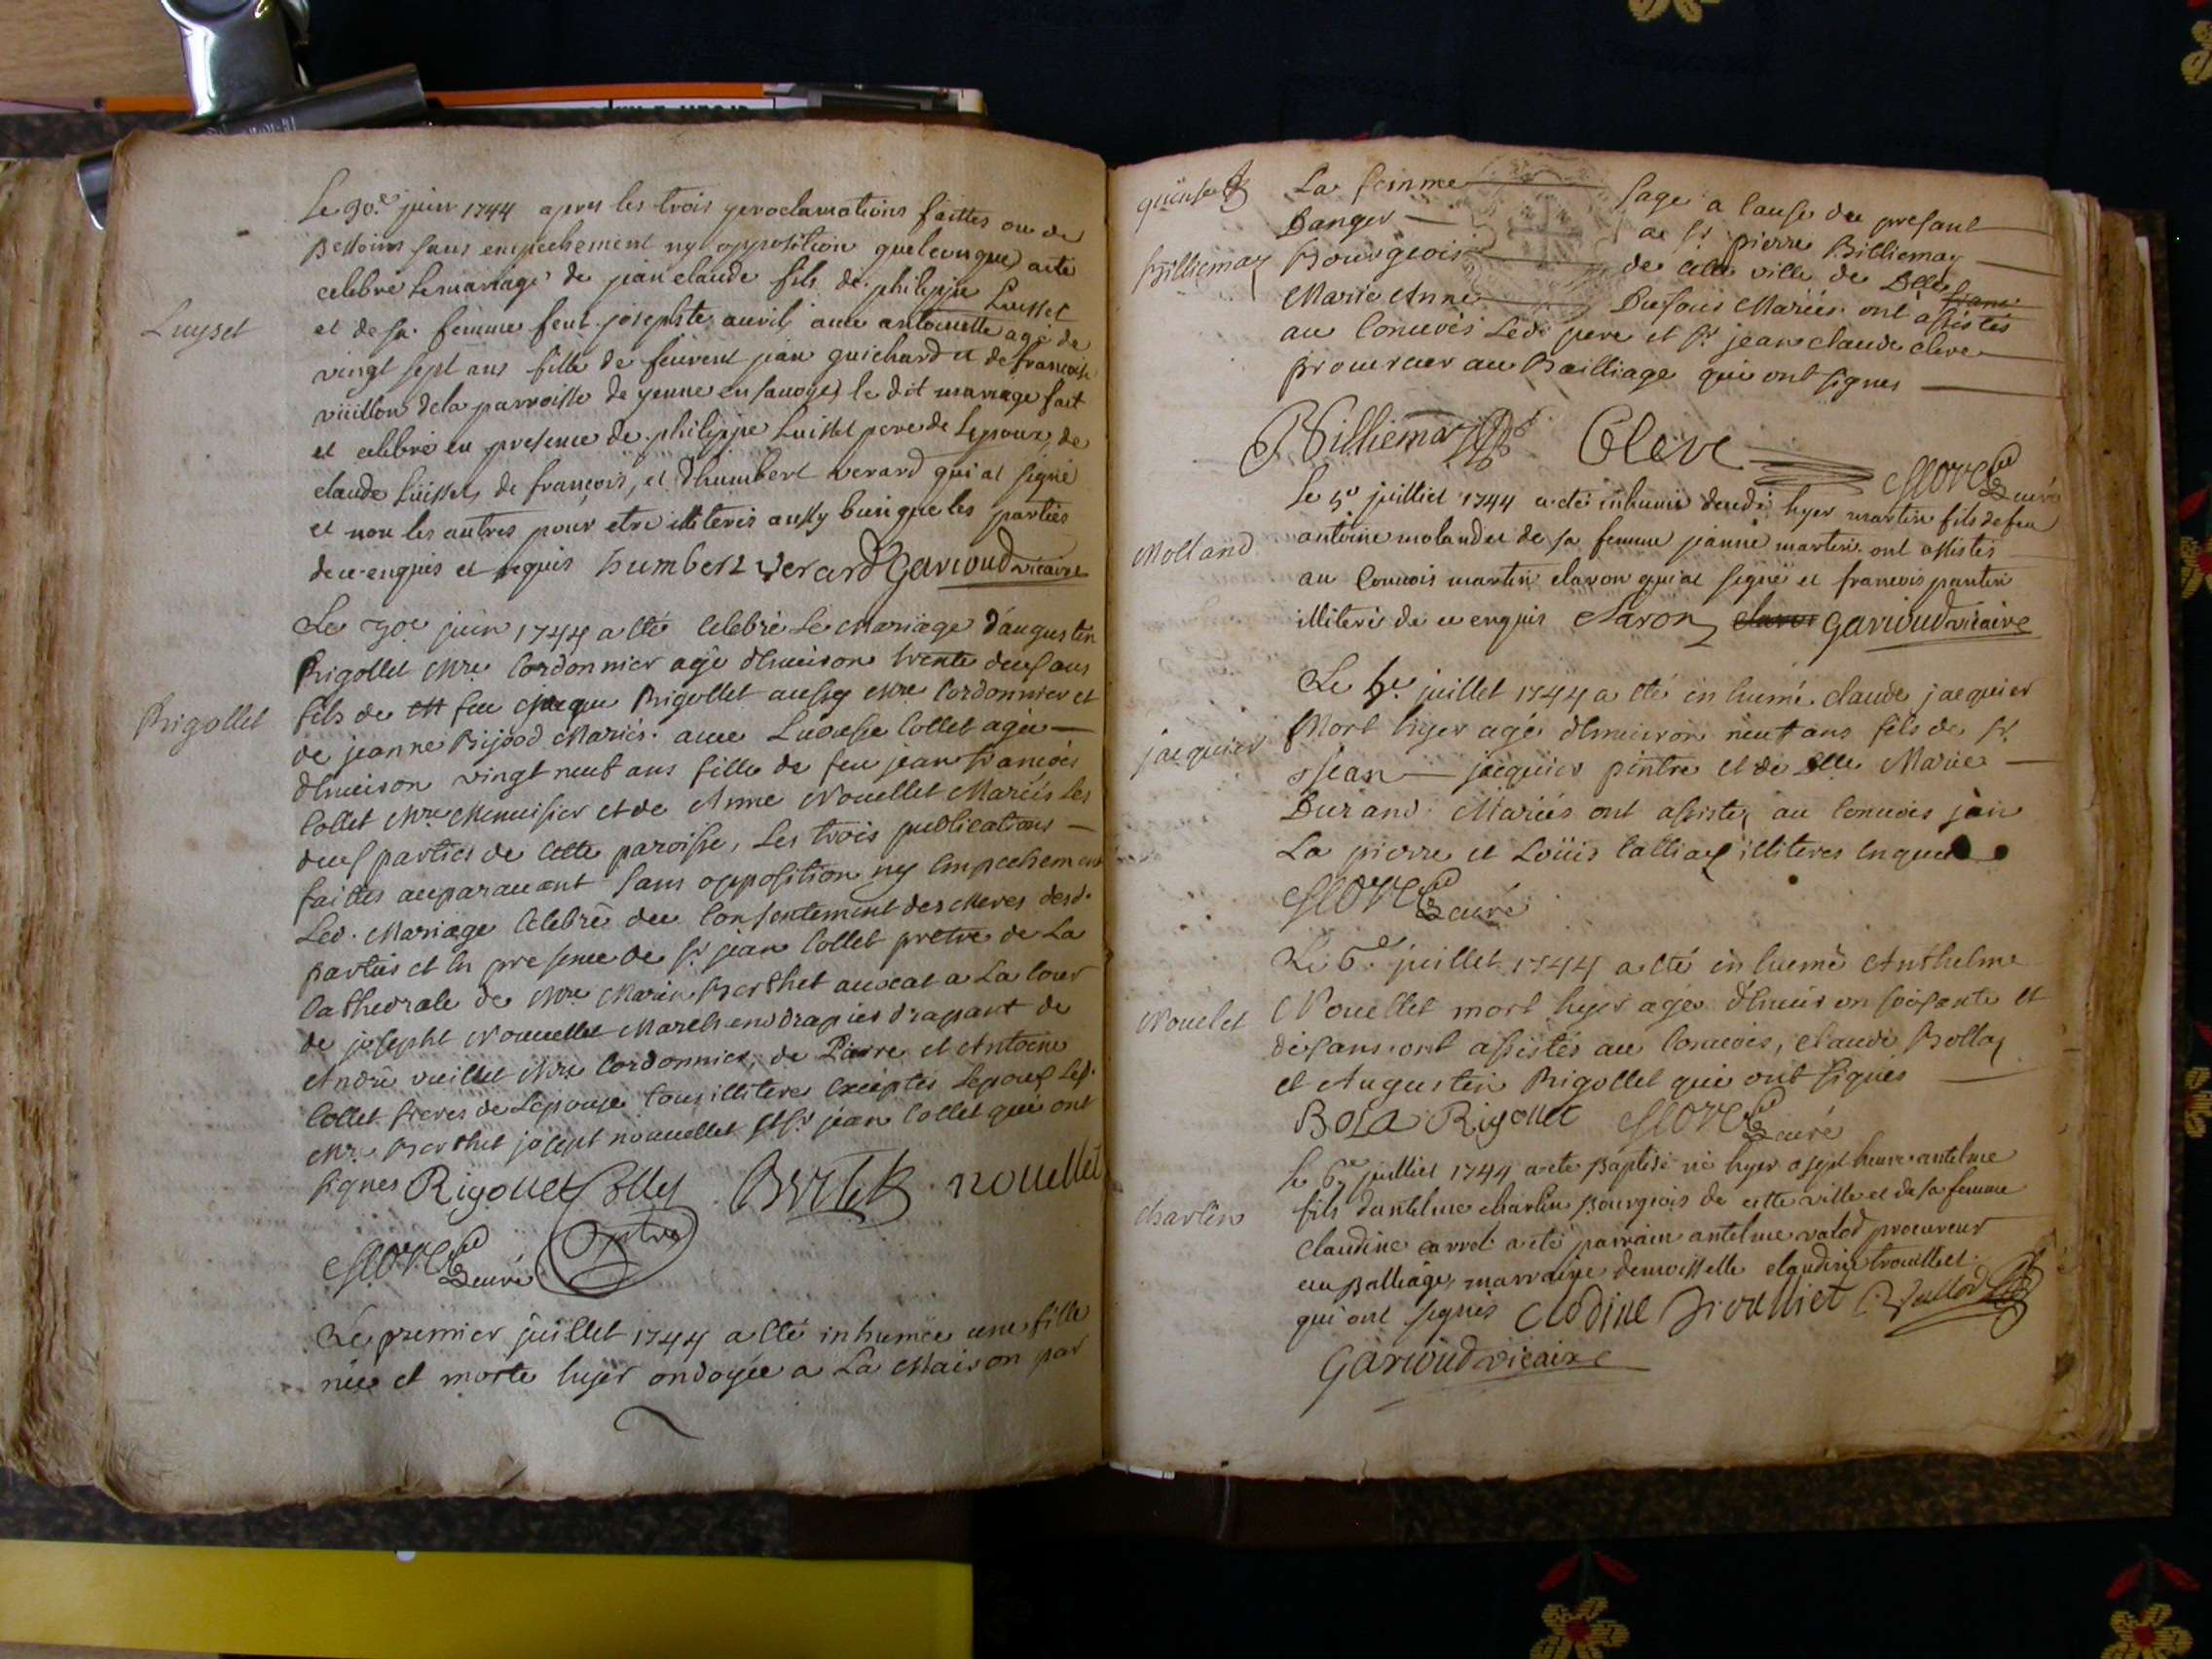 Luyset
Le 30.e juin 1744 apres les trois proclamations faittes ou de
Bessoins sans empechement ny opposition quelconque, a ete
celebré le mariage de jean claude fils de philippe Luisset
et de sa femme feue josephte auril, avec antoinette age de
vingt sept ans fille de feurent jean guichard et de francoise
vuillon de la parroisse de yenne en savoye, le dit mariage fait
et celebré en presence de philippe Luisset pere de Lepoux, de
claude Luisset, de francois, et d'humbert verard qui at signé
et non les autres pour etre illiteris aussy bien que les parties
de ce enquis et requis humbert verard Garioud vicaire
Rigollet
Le 30e juin 1744 a eté Celebré Le Mariage d'augustin
Rigollet Mre Cordonnier agé d'Enuiron trente deux ans
fils de feu Rigollet aussy Mre Cordonnier et
de jeanne Mariés. avec Collet agée
d'Enuiron vingt neuf ans fille de feu jean François
Collet Mre Menuisier et de Anne Nouellet Mariés les
deux parties de Cette paroisse, Les trois publications
faittes auparauant sans opposition ny Empechement
Led. Mariage Celebré du Consentement des Meres desd.
parties et En presence de Sr jean Collet pretre de La
Cathedrale de Mre Marin Berthet auocat a La Cour
de josepht Nouuellet Marchand drapier drapant de
André vuillet Mre Cordonnier, de Pierre et Antoine
Collet freres de Lepouse tous illiteres Exceptés Lepoux Led.
Mre Berthet josept nouuellet et Sr jean Collet qui ont
signes Rigollet Collet Bertet nouellet
curé ptre
Le premier juillet 1744 a eté inhumée une fille
née et morte hyer ondoyée a La Maison par
Billiemaz
La femme sage a Cause du presant
Danger de Sr pierre Billiemaz
Bourgeois de Cette ville de Dlle
Marie Anne Dufour Mariés ont assistés
au Conuois Led. pere et Sr jean claude Clerc
procureur au Bailliage qui ont signes
Billiemaz Clerc
curé
Molland
Le 5e juilliet 1744 a ete inhumé decede hyer martin fils de feu
antoine moland et de sa femme jeanne martin. ont assistes
au Conuois martin claron qui at signé et francois pantin
illiteré de ce enquis Claron Garioud vicaire
jacquier
Le 6e juillet 1744 a eté inhumé claude jacquier
Mort hyer agé d'Enuiron neuf ans fils de Sr
jean jacquier pintre et de Dlle Marie
Durand Mariés ont assistes au Conuois jean
La pierre et Loüis illiteres Enquis
curé
Nouelet
Le 6.e juillet 1744 a eté inhumé Anthelme
Nouellet mort hyer age d'Enuiron soixante et
dix ans. ont assistés au Conuois, Claude Bolla
et Augustin Rigollet qui ont signés
Bola Rigollet curé
charlin
Le 6e juilliet 1744 a ete Baptisé né hyer a sept heures antelme
fils d'antelme charlin Bourgeois de cette ville et de sa femme
claudine carrel a eté parrain antelme valod procureur
au Balliage, marraine demoisselle claudine trouilliet
qui ont signés Clodine Trouilliet Vallod
Garioud vicaire